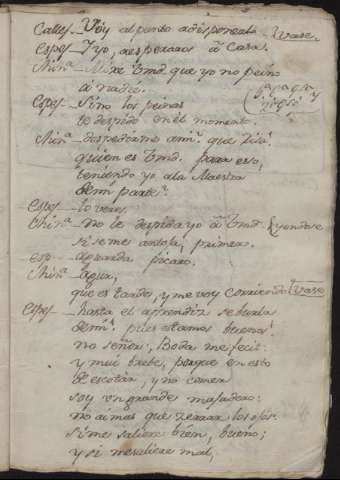 Calles. Voy al punto a disponerlo. Vase.
Espes. Y yo, a esperaros a Casa.
Chin.ª Mire Vmd. que yo no peino
a nadie.
Espes. Si no los peinas
te despido en el momento.
Chin.ª despedirme a mi? que risa!
quien es Vmd. para eso,
teniendo yo a la Maestra
de mi parte?
Espes. lo veras.
Chin.ª No le despida yo a Vmd. yendose
si se me antoja, primero.
esp. aguarda picaro.
Chin.ª Agur,
que es tarde, y me voy corriendo Vase
Espes. hasta el aprendiz se burla
de mi! pues estamos buenos!
no señor, Boda me fecit
y mui breve, porque en esto
de escotar, y no comer
soy un grande majadero:
no ai mas que cerrar los ojos.
si me saliere bien, bueno;
y si me saliere mal,